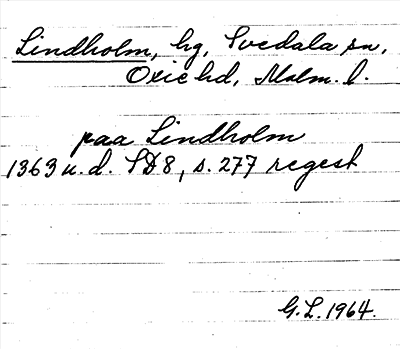 Lindholm, hg, Svedala sn,
Oxie hd, Malm. l.
paa Lindholm
1363 u.d. SD 8, s. 277 regest
G.L. 1964.